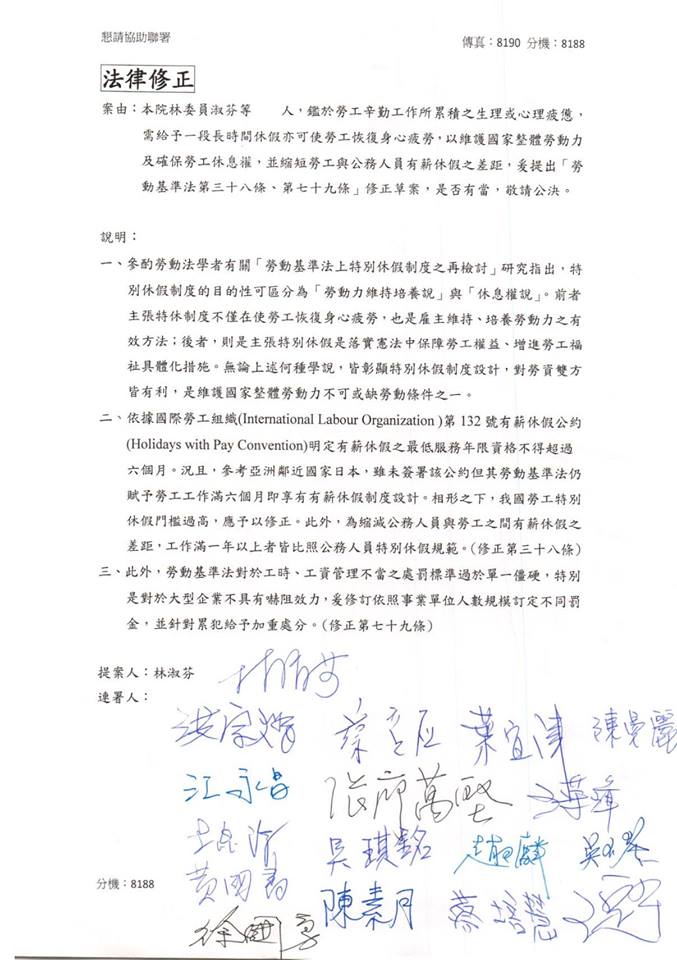 懇請協助聯署
傳真：8190 分機：8188
法律修正
案由：本院林委員淑芬等　　人，鑑於勞工辛勤工作所累積之生理或心理疲憊，
需給予一段長時間休假亦可使勞工恢復身心疲勞，以維護國家整體勞動力
及確保勞工休息權，並縮短勞工與公務人員有薪休假之差距，爰提出「勞
動基準法第三十八條、第七十九條」修正草案，是否有當，敬請公決。
說明：
一、參酌勞動法學者有關「勞動基準法上特別休假制度之再檢討」研究指出，特
別休假制度的目的性可區分為「勞動力維持培養說」與「休息權說」。前者
主張特休制度不僅在使勞工恢復身心疲勞，也是雇主維持、培養勞動力之有
效方法；後者，則是主張特別休假是落實憲法中保障勞工權益、增進勞工福
祉具體化措施。無論上述何種學說，皆彰顯特別休假制度設計，對勞資雙方
皆有利，是維護國家整體勞動力不可或缺勞動條件之一。
二、依據國際勞工組織(International Labour Organization )第 132 號有薪休假公約
(Holidays with Pay Convention)明定有薪休假之最低服務年限資格不得超過
六個月。況且，參考亞洲鄰近國家日本，雖未簽署該公約但其勞動基準法仍
賦予勞工工作滿六個月即享有有薪休假制度設計。相形之下，我國勞工特別
休假門檻過高，應予以修正。此外，為縮減公務人員與勞工之間有薪休假之
差距，工作滿一年以上者皆比照公務人員特別休假規範。(修正第三十八條)
三、此外，勞動基準法對於工時、工資管理不當之處罰標準過於單一僵硬，特別
是對於大型企業不具有嚇阻效力，爰修訂依照事業單位人數規模訂定不同罰
金，並針對累犯給予加重處分。(修正第七十九條)
提案人：林淑芬
連署人：
葉宜津 陳曼麗
江永昌 張廖萬堅
吳琪銘
黃國書
陳素月 蔡培慧
分機：8188